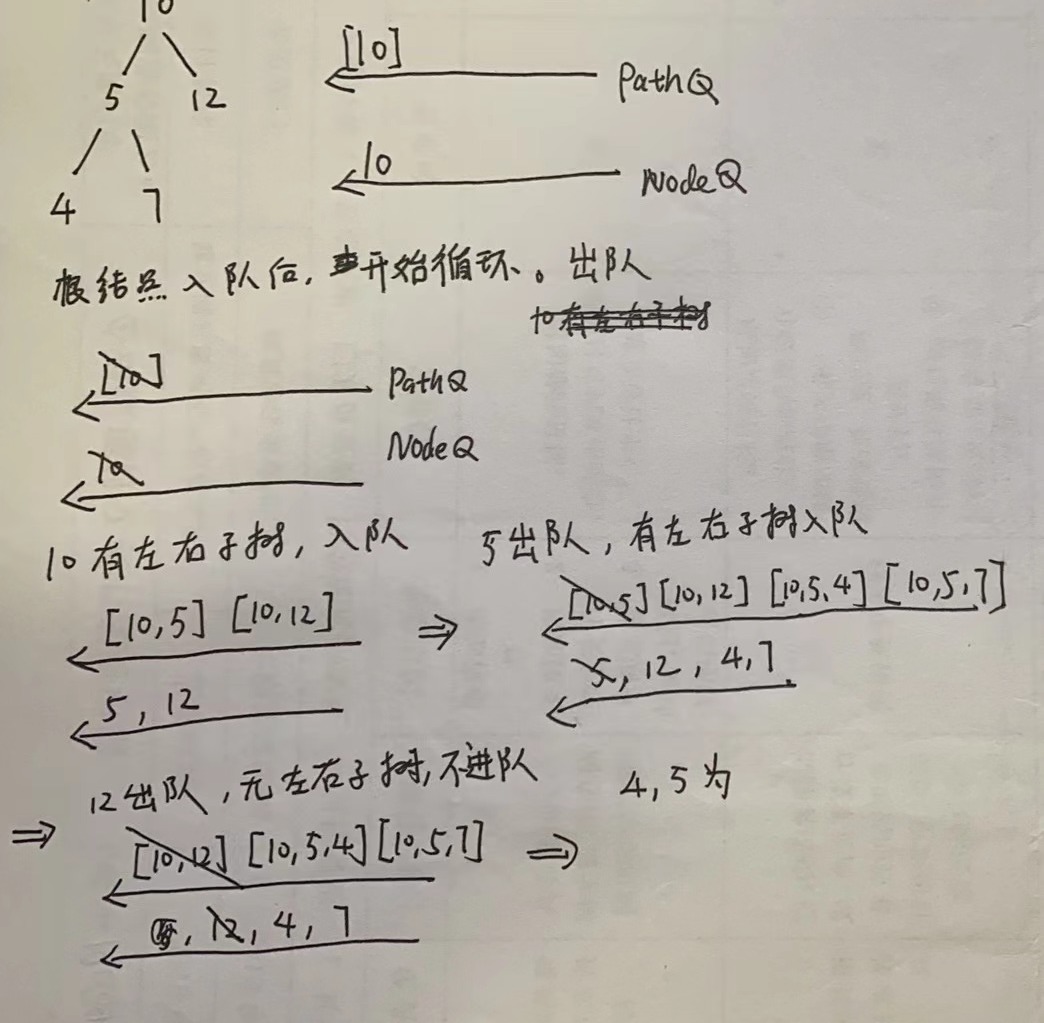 10
5 12
4 7
[10] PathQ
10 NodeQ
根结点入队后,开始循环。出队
10有左右子树
[10] PathQ
10 NodeQ
10有左右子树,入队
[10,5] [10,12]
5,12
⇒
5出队,有左右子树入队
[10,5] [10,12] [10,5,4] [10,5,7]
5,12,4,7
⇒
12出队,无左右子树,不进队
[10,12] [10,5,4] [10,5,7]
12,4,7
⇒
4,5为